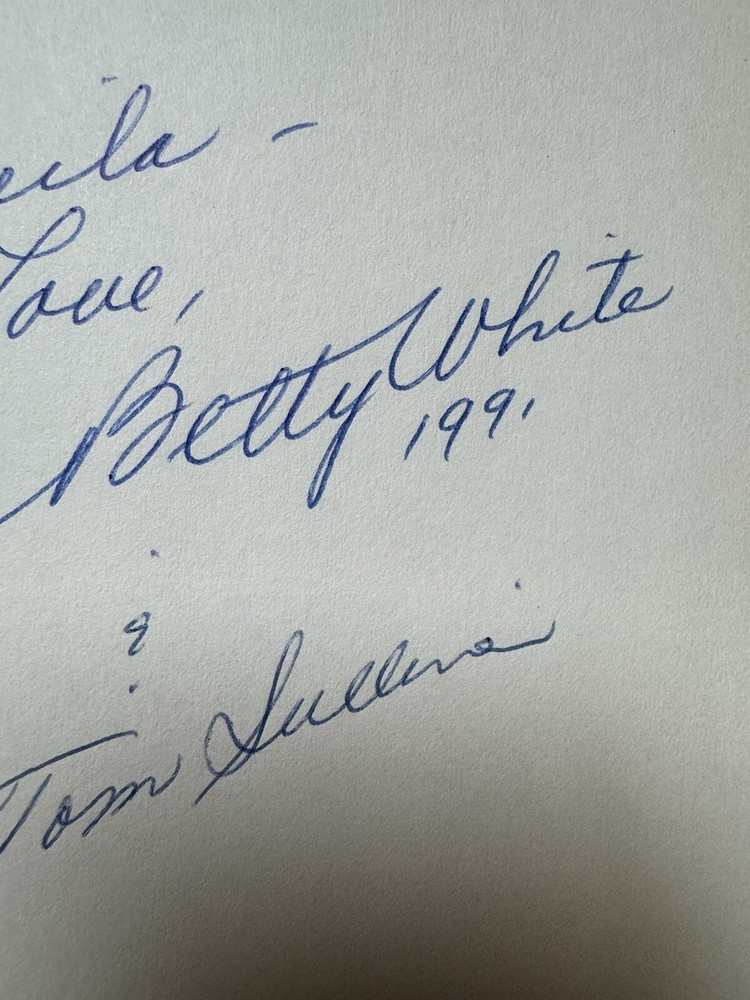 eila -
Love,
Betty White
1991
&
Tom Sullivan